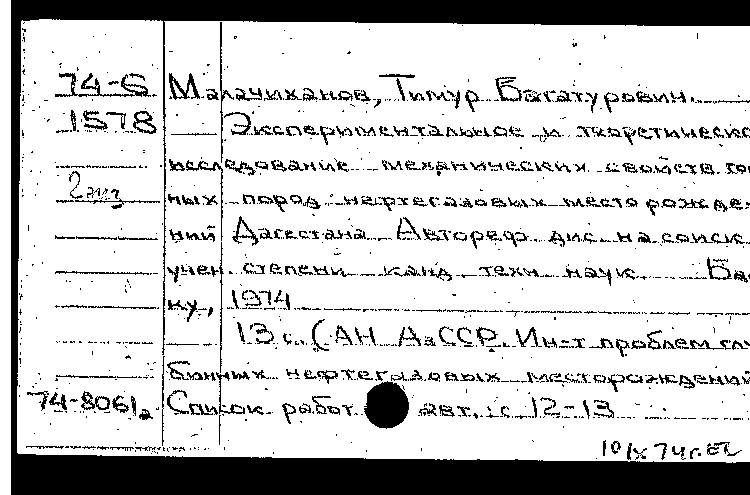 74-6 Малачиханов, Тимур Багатурович.
1578 Экспериментальное и теоретическо
исследование механических свойств гор
2 экз ных пород нефтегазовых месторожде-
ний Дагестана Автореф. дис. на соиск.
учен. степени канд. техн. наук. Ба
ку, 1974
13 с. (АН АзССР. Ин-т проблем глу
бинных нефтегазовых месторождений
74-8061а Список работ авт.: с 12-13
10/X 74 г.